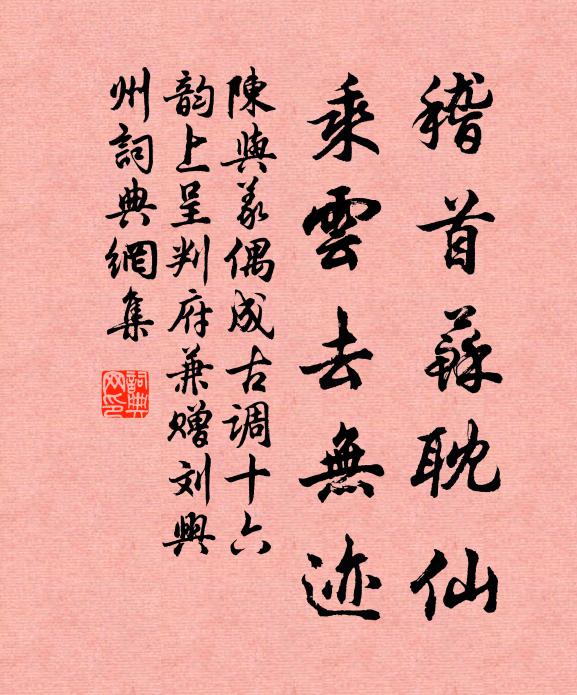 稽首蘇耽仙
乘雲去無迹
陳與義偶成古调十六
韵上呈判府兼赠刘興
州詞典網集
詞典网印